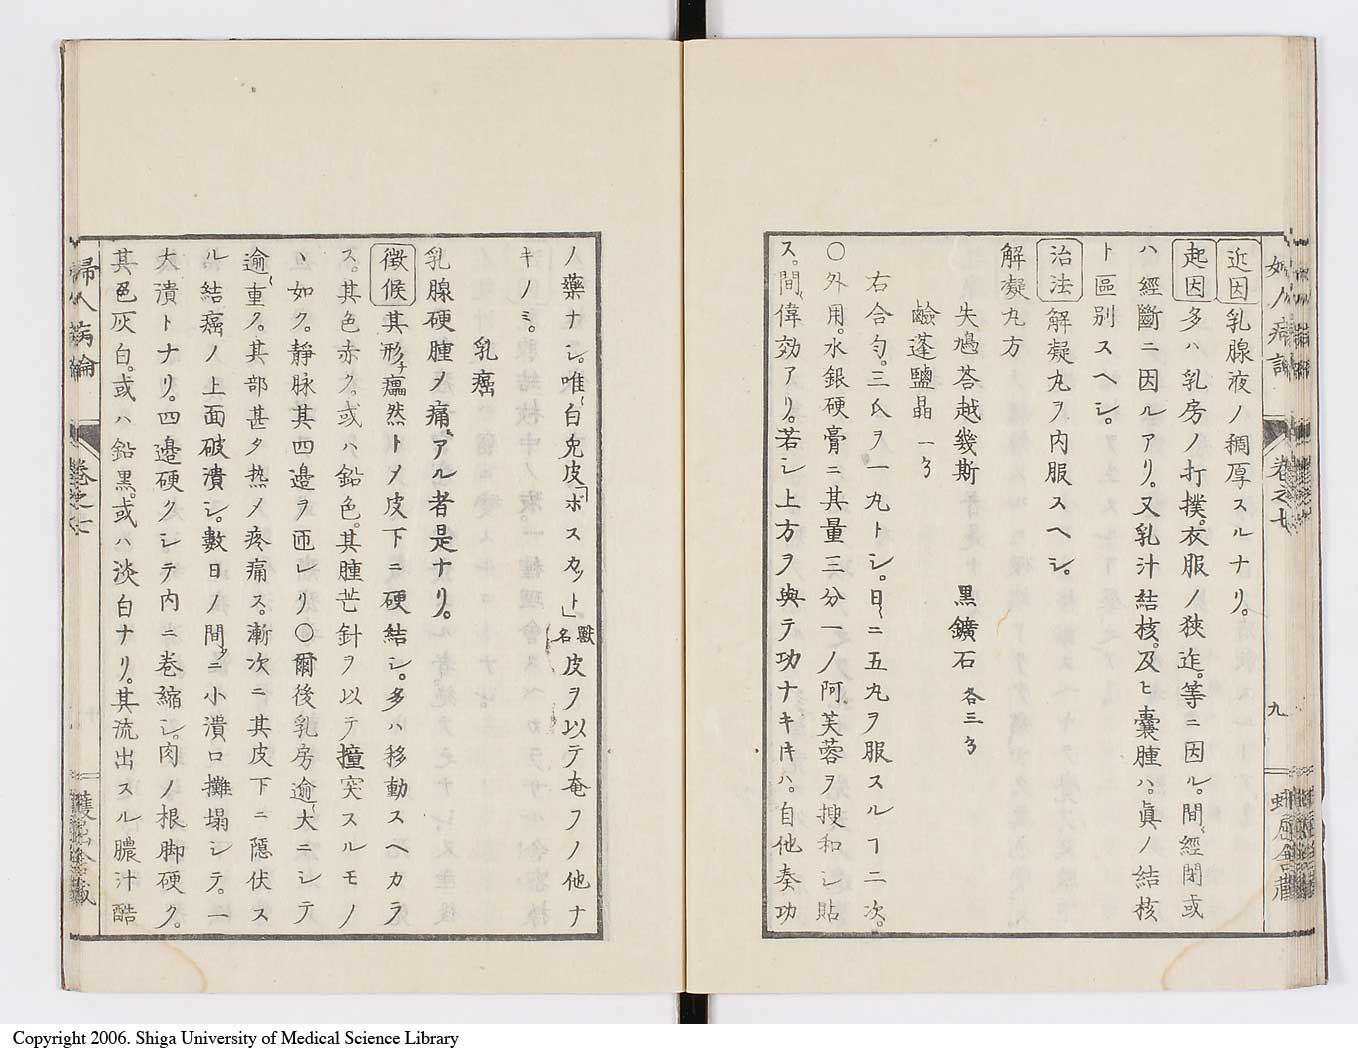 近因 乳腺液ノ稠厚スルナリ。
起因 多ハ乳房ノ打撲。衣服ノ狹迮。等ニ因ル。間〻經閉或
ハ經斷ニ因ルアリ。又乳汁結核。及ヒ囊腫ハ。眞ノ結核
ト區别スヘシ。
治法 解凝丸ヲ内服スヘシ。
解凝丸方
失鳰荅越幾斯 黒鑛石 各三
鹼蓬鹽晶 一
右合匀。三 ヲ一丸トシ。日〻ニ五丸ヲ服スルヿ二次。
〇外用。水銀硬膏ニ其量三分一ノ阿芙蓉ヲ搜和シ貼
ス。間〻偉効アリ。若シ上方ヲ與テ功ナキキハ。自他奏功
九
ノ藥ナシ。唯〻白免皮「ボスカット」獸名皮ヲ以テ奄フノ他ナ
キノミ。
乳癌
乳腺硬腫ヲ痛 アル者是ナリ。
徴候 其形チ 然トメ皮下ニ硬結シ。多ハ移動スヘカラ
ス。其色赤ク。或ハ鉛色。其腫芒針ヲ以テ撞突スルモノ
丶如ク。靜脉其四邉ヲ匝レリ〇爾後乳房逾〻大ニシテ
逾〻重ク。其部甚タ热ノ疼痛ス。漸次ニ其皮下ニ隱伏ス
ル結癌ノ上面破潰シ。數日ノ間タニ小潰口攤塌シテ。一
大潰トナリ。四邉硬クシテ内ニ卷縮シ。肉ノ根脚硬ク。
其色灰白。或ハ鉛黒。或ハ淡白ナリ。其流出スル膿汁酷
婦人病論
卷之七
Copyright 2006. Shiga University of Medical Science Library